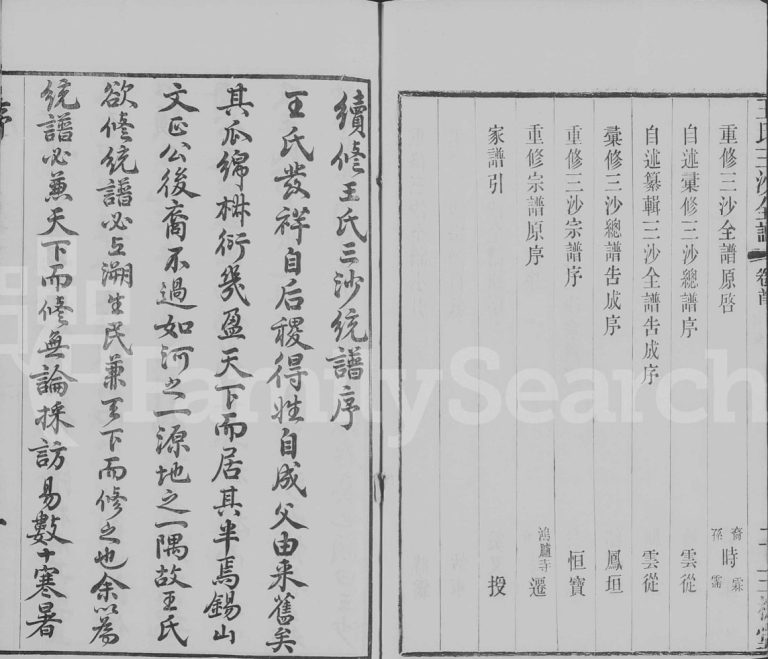 王氏三沙全譜 卷首
重修三沙全譜原啓 裔孫 時霖
自述彙修三沙總譜序 雲從
自述纂輯三沙全譜告成序 雲從
彙修三沙總譜告成序 鳳垣
重修三沙宗譜序 恒寶
重修宗譜原序 鴻臚寺 遷
家譜引 投
續修王氏三沙統譜序
王氏發祥自后稷得姓自成父由来舊矣
其瓜綿椒衍幾盈天下而居其半焉錫山
文正公後裔不過如河之一源地之一隅故王氏
欲修統譜必上溯生民兼天下而修之也余以為
統譜必兼天下而修無論採訪易數十寒暑
序
FamilySearch